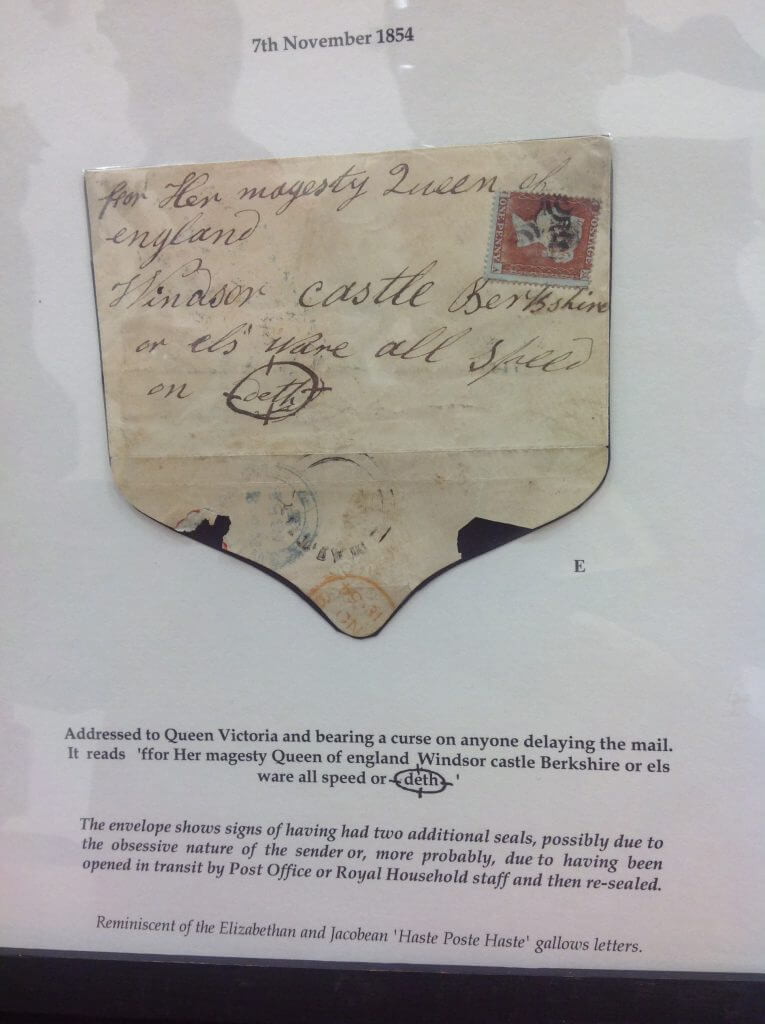 7th November 1854
ffor Her magesty Queen of
england
Windsor castle Berkshire
or els ware all speed
on deth
ONE PENNY
POSTAGE
A
E
Addressed to Queen Victoria and bearing a curse on anyone delaying the mail.
It reads 'ffor Her magesty Queen of england Windsor castle Berkshire or els
ware all speed or deth '
The envelope shows signs of having had two additional seals, possibly due to
the obsessive nature of the sender or, more probably, due to having been
opened in transit by Post Office or Royal Household staff and then re-sealed.
Reminiscent of the Elizabethan and Jacobean 'Haste Poste Haste' gallows letters.